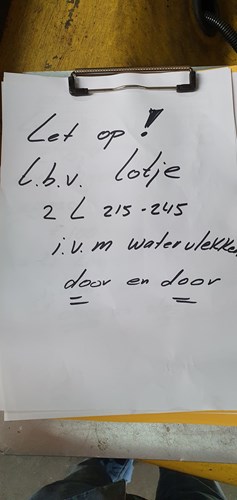 Let op!
l.b.v. lotje
2 L 215-245
i.v.m watervlekken
door en door